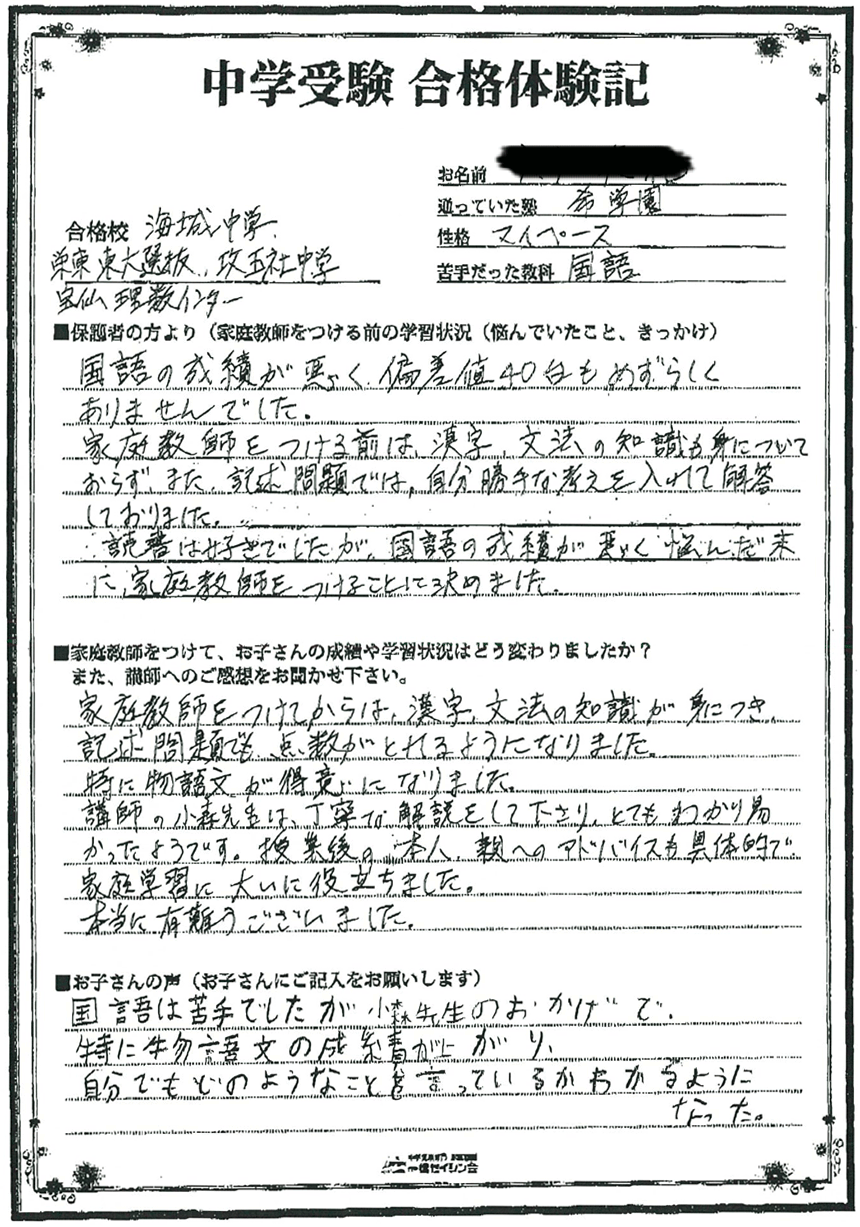 中学受験 合格体験記
お名前
通っていた塾 希学園
合格校 海城中学、
性格 マイペース
栄東 東大選抜、攻玉社中学
苦手だった教科 国語
宝仙 理数インター
■保護者の方より（家庭教師をつける前の学習状況（悩んでいたこと、きっかけ）
国語の成績が悪く、偏差値40台もめずらしく
ありませんでした。
家庭教師をつける前は、漢字、文法の知識も身について
おらず、また、記述問題では、自分勝手な考えを入れて解答
しておりました。
読書は好きでしたが、国語の成績が悪く悩んだ末
に、家庭教師をつけることに決めました。
■家庭教師をつけて、お子さんの成績や学習状況はどう変わりましたか？
また、講師へのご感想をお聞かせ下さい。
家庭教師をつけてからは、漢字、文法の知識が身につき、
記述問題でも、点数がとれるようになりました。
特に物語文が得意になりました。
講師の小森先生は、丁寧な解説をして下さり、とてもわかり易
かったようです。授業後の本人、親へのアドバイスも具体的で、
家庭学習に大いに役立ちました。
本当に有難うございました。
■お子さんの声（お子さんにご記入をお願いします）
国語は苦手でしたが小森先生のおかげで、
特に物語文の成績が上がり、
自分でもどのようなことを言っているかわかるように
なった。
セイシン会